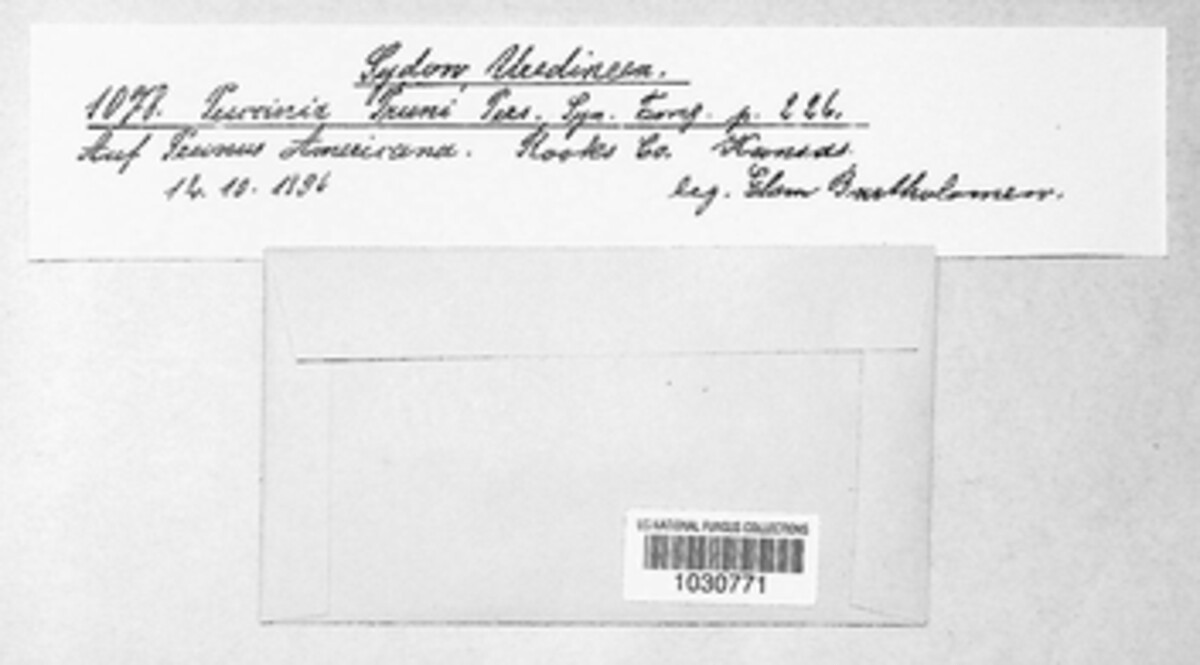 Sydow, Uredineen.
1078. Puccinia Pruni Pers. Syn. Fung. p. 226.
Auf Prunus Americana. Rooks Co. Kansas.
14. 10. 1896 leg. Elam Bartholomew.
US NATIONAL FUNGUS COLLECTIONS
1030771